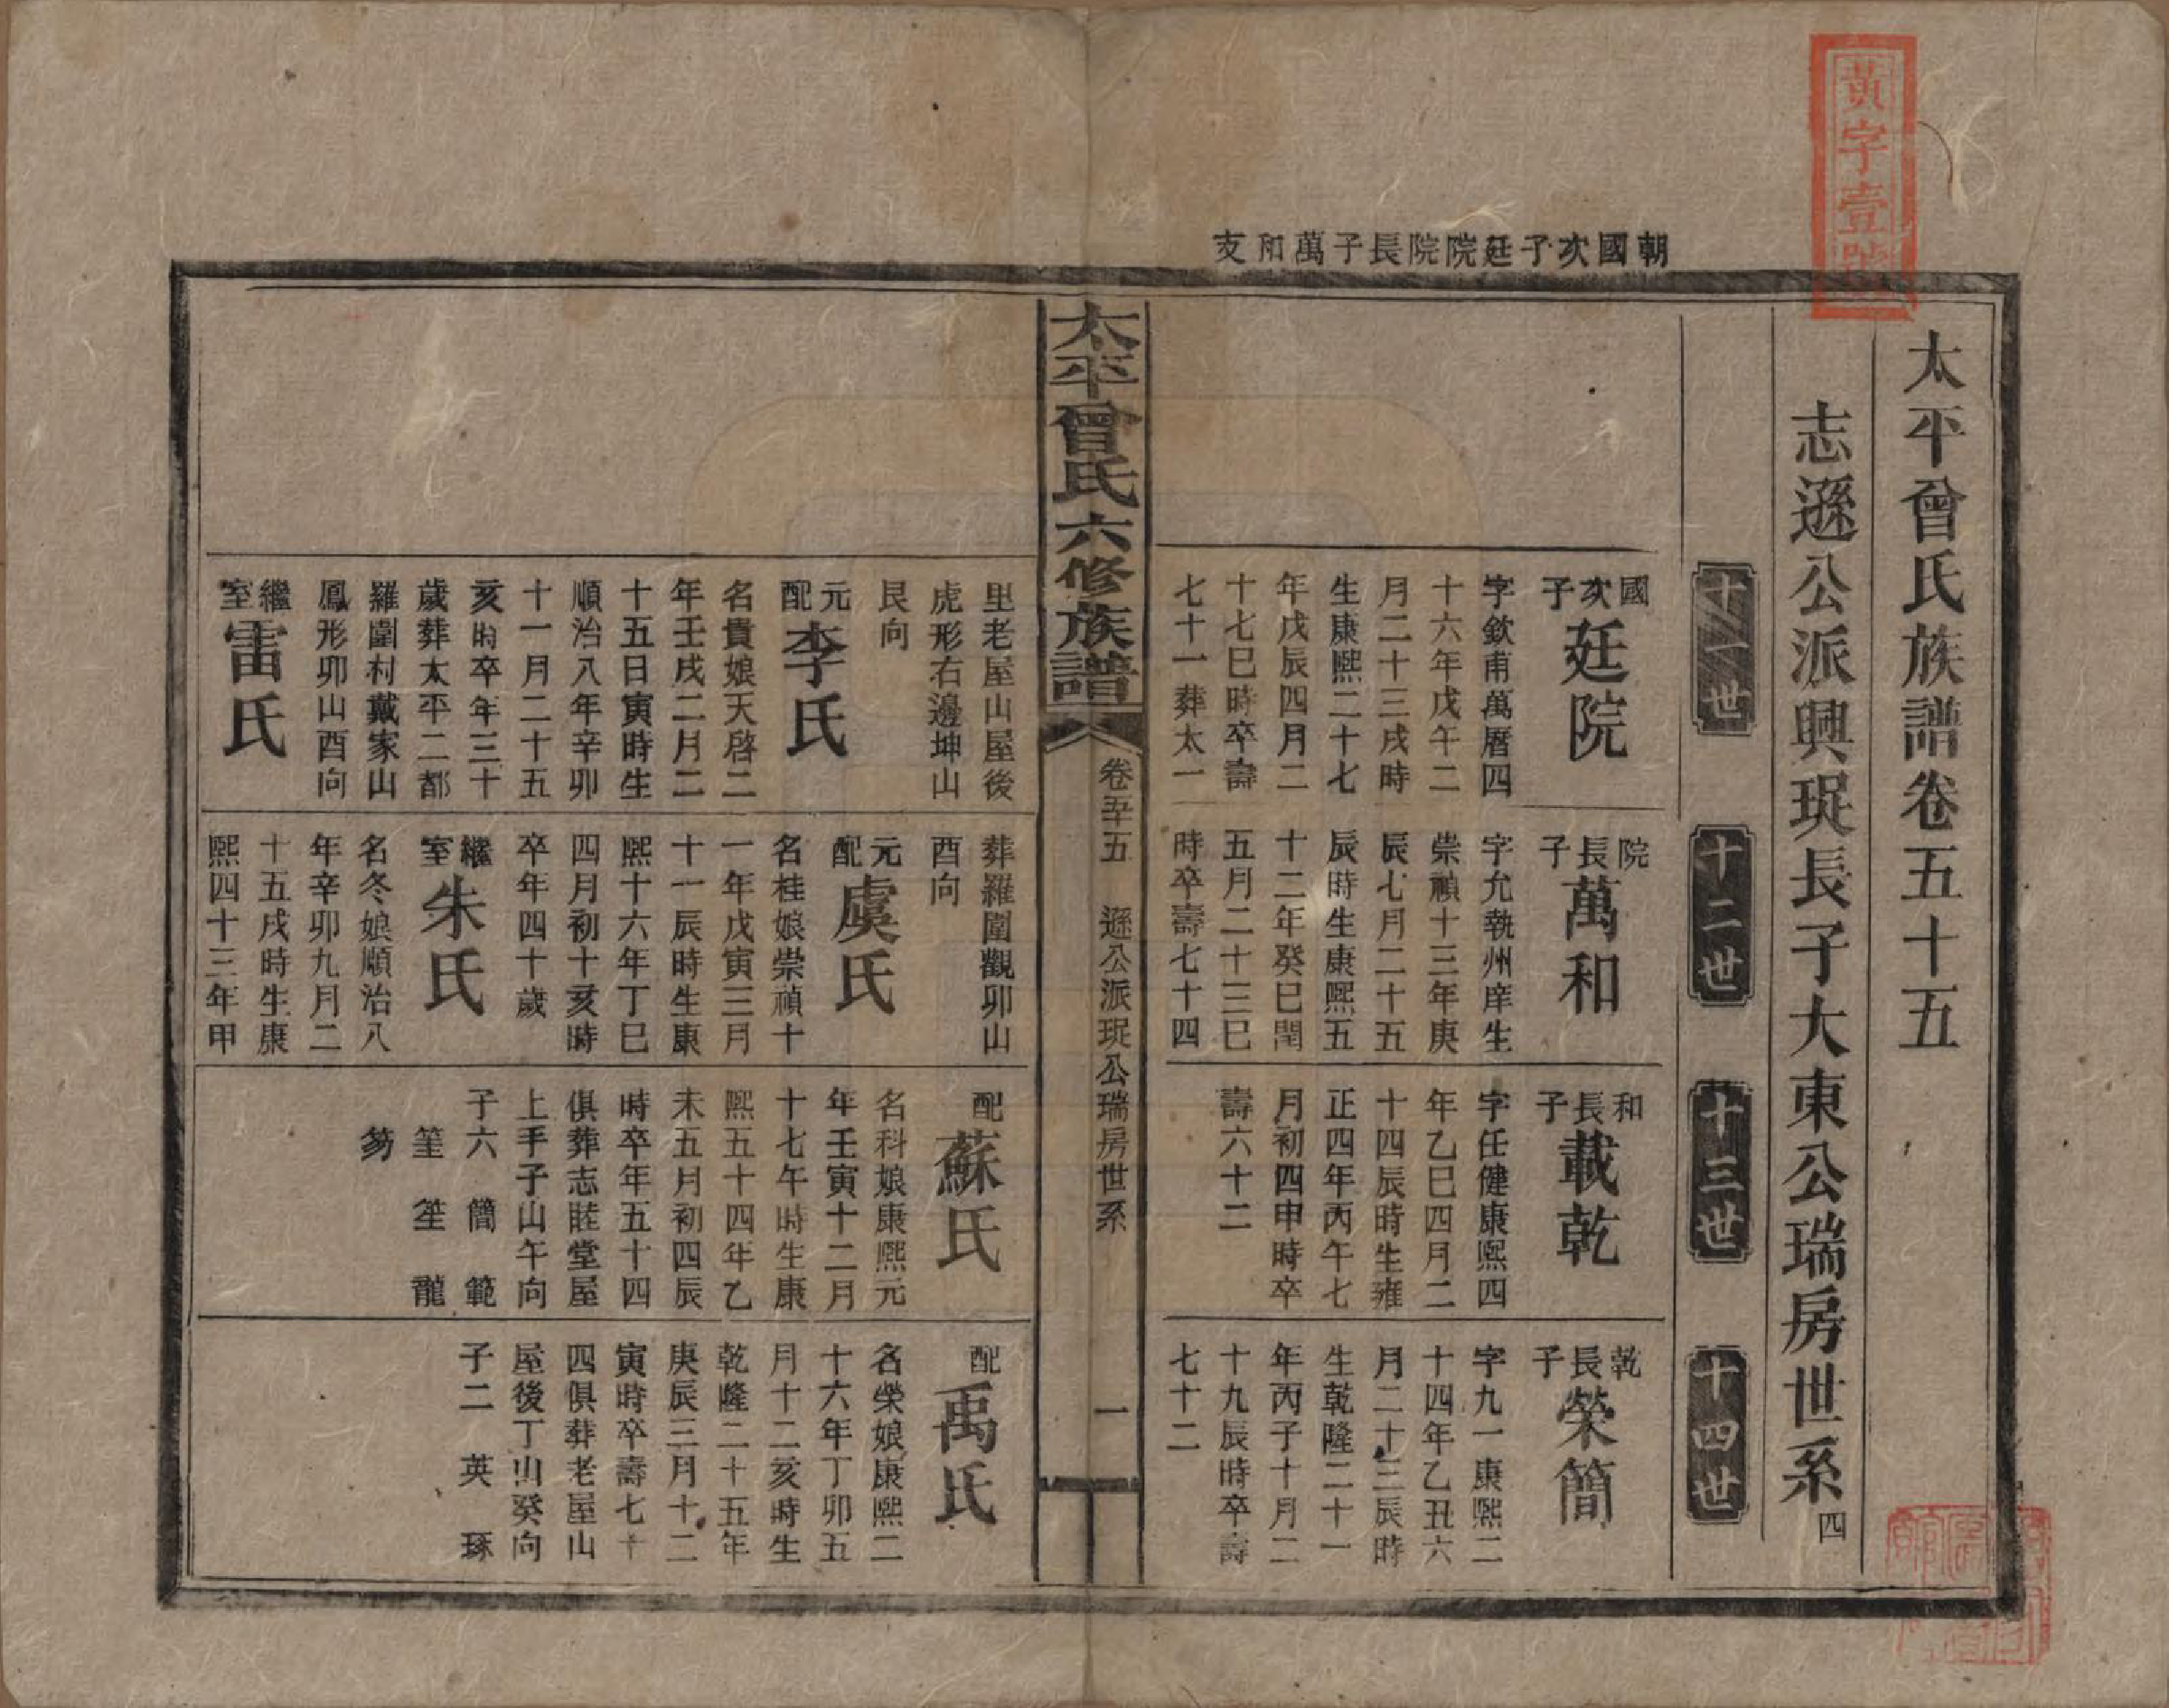 黃字壹號
朝國次子廷院院長子萬和支
太平曾氏族譜卷五十五
志遜公派興珿長子大東公瑞房世系四
十一世
十二世
十三世
十四世
國次子廷院
字欽甫萬曆四
十六年戊午二
月二十三戌時
生康熙二十七
年戊辰四月二
十七巳時卒壽
七十一葬太一
院長子萬和
字允執州庠生
崇禎十三年庚
辰七月二十五
辰時生康熙五
十二年癸巳閏
五月二十三巳
時卒壽七十四
和長子載乾
字任健康熙四
年乙巳四月二
十四辰時生雍
正四年丙午七
月初四申時卒
壽六十二
乾長子榮簡
字九一康熙二
十四年乙丑六
月二十三辰時
生乾隆二十一
年丙子十月二
十九辰時卒壽
七十二
太平曾氏六修族譜
卷五十五
遜公派珿公瑞房世系
一
里老屋山屋後
虎形右邊坤山
艮向
元配李氏
名貴娘天啓二
年壬戌二月二
十五日寅時生
順治八年辛卯
十一月二十五
亥時卒年三十
歲葬太平二都
羅圍村戴家山
鳳形卯山酉向
繼室雷氏
葬羅圍觀卯山
酉向
元配虞氏
名桂娘崇禎十
一年戊寅三月
十一辰時生康
熙十六年丁巳
四月初十亥時
卒年四十歲
繼室朱氏
名冬娘順治八
年辛卯九月二
十五戌時生康
熙四十三年甲
配蘇氏
名科娘康熙元
年壬寅十二月
十七午時生康
熙五十四年乙
未五月初四辰
時卒年五十四
俱葬志睦堂屋
上手子山午向
子六 簡 範
筀 筌 龍
笏
配禹氏
名榮娘康熙二
十六年丁卯五
月十二亥時生
乾隆二十五年
庚辰三月十二
寅時卒壽七十
四俱葬老屋山
屋後丁山癸向
子二 英 琢